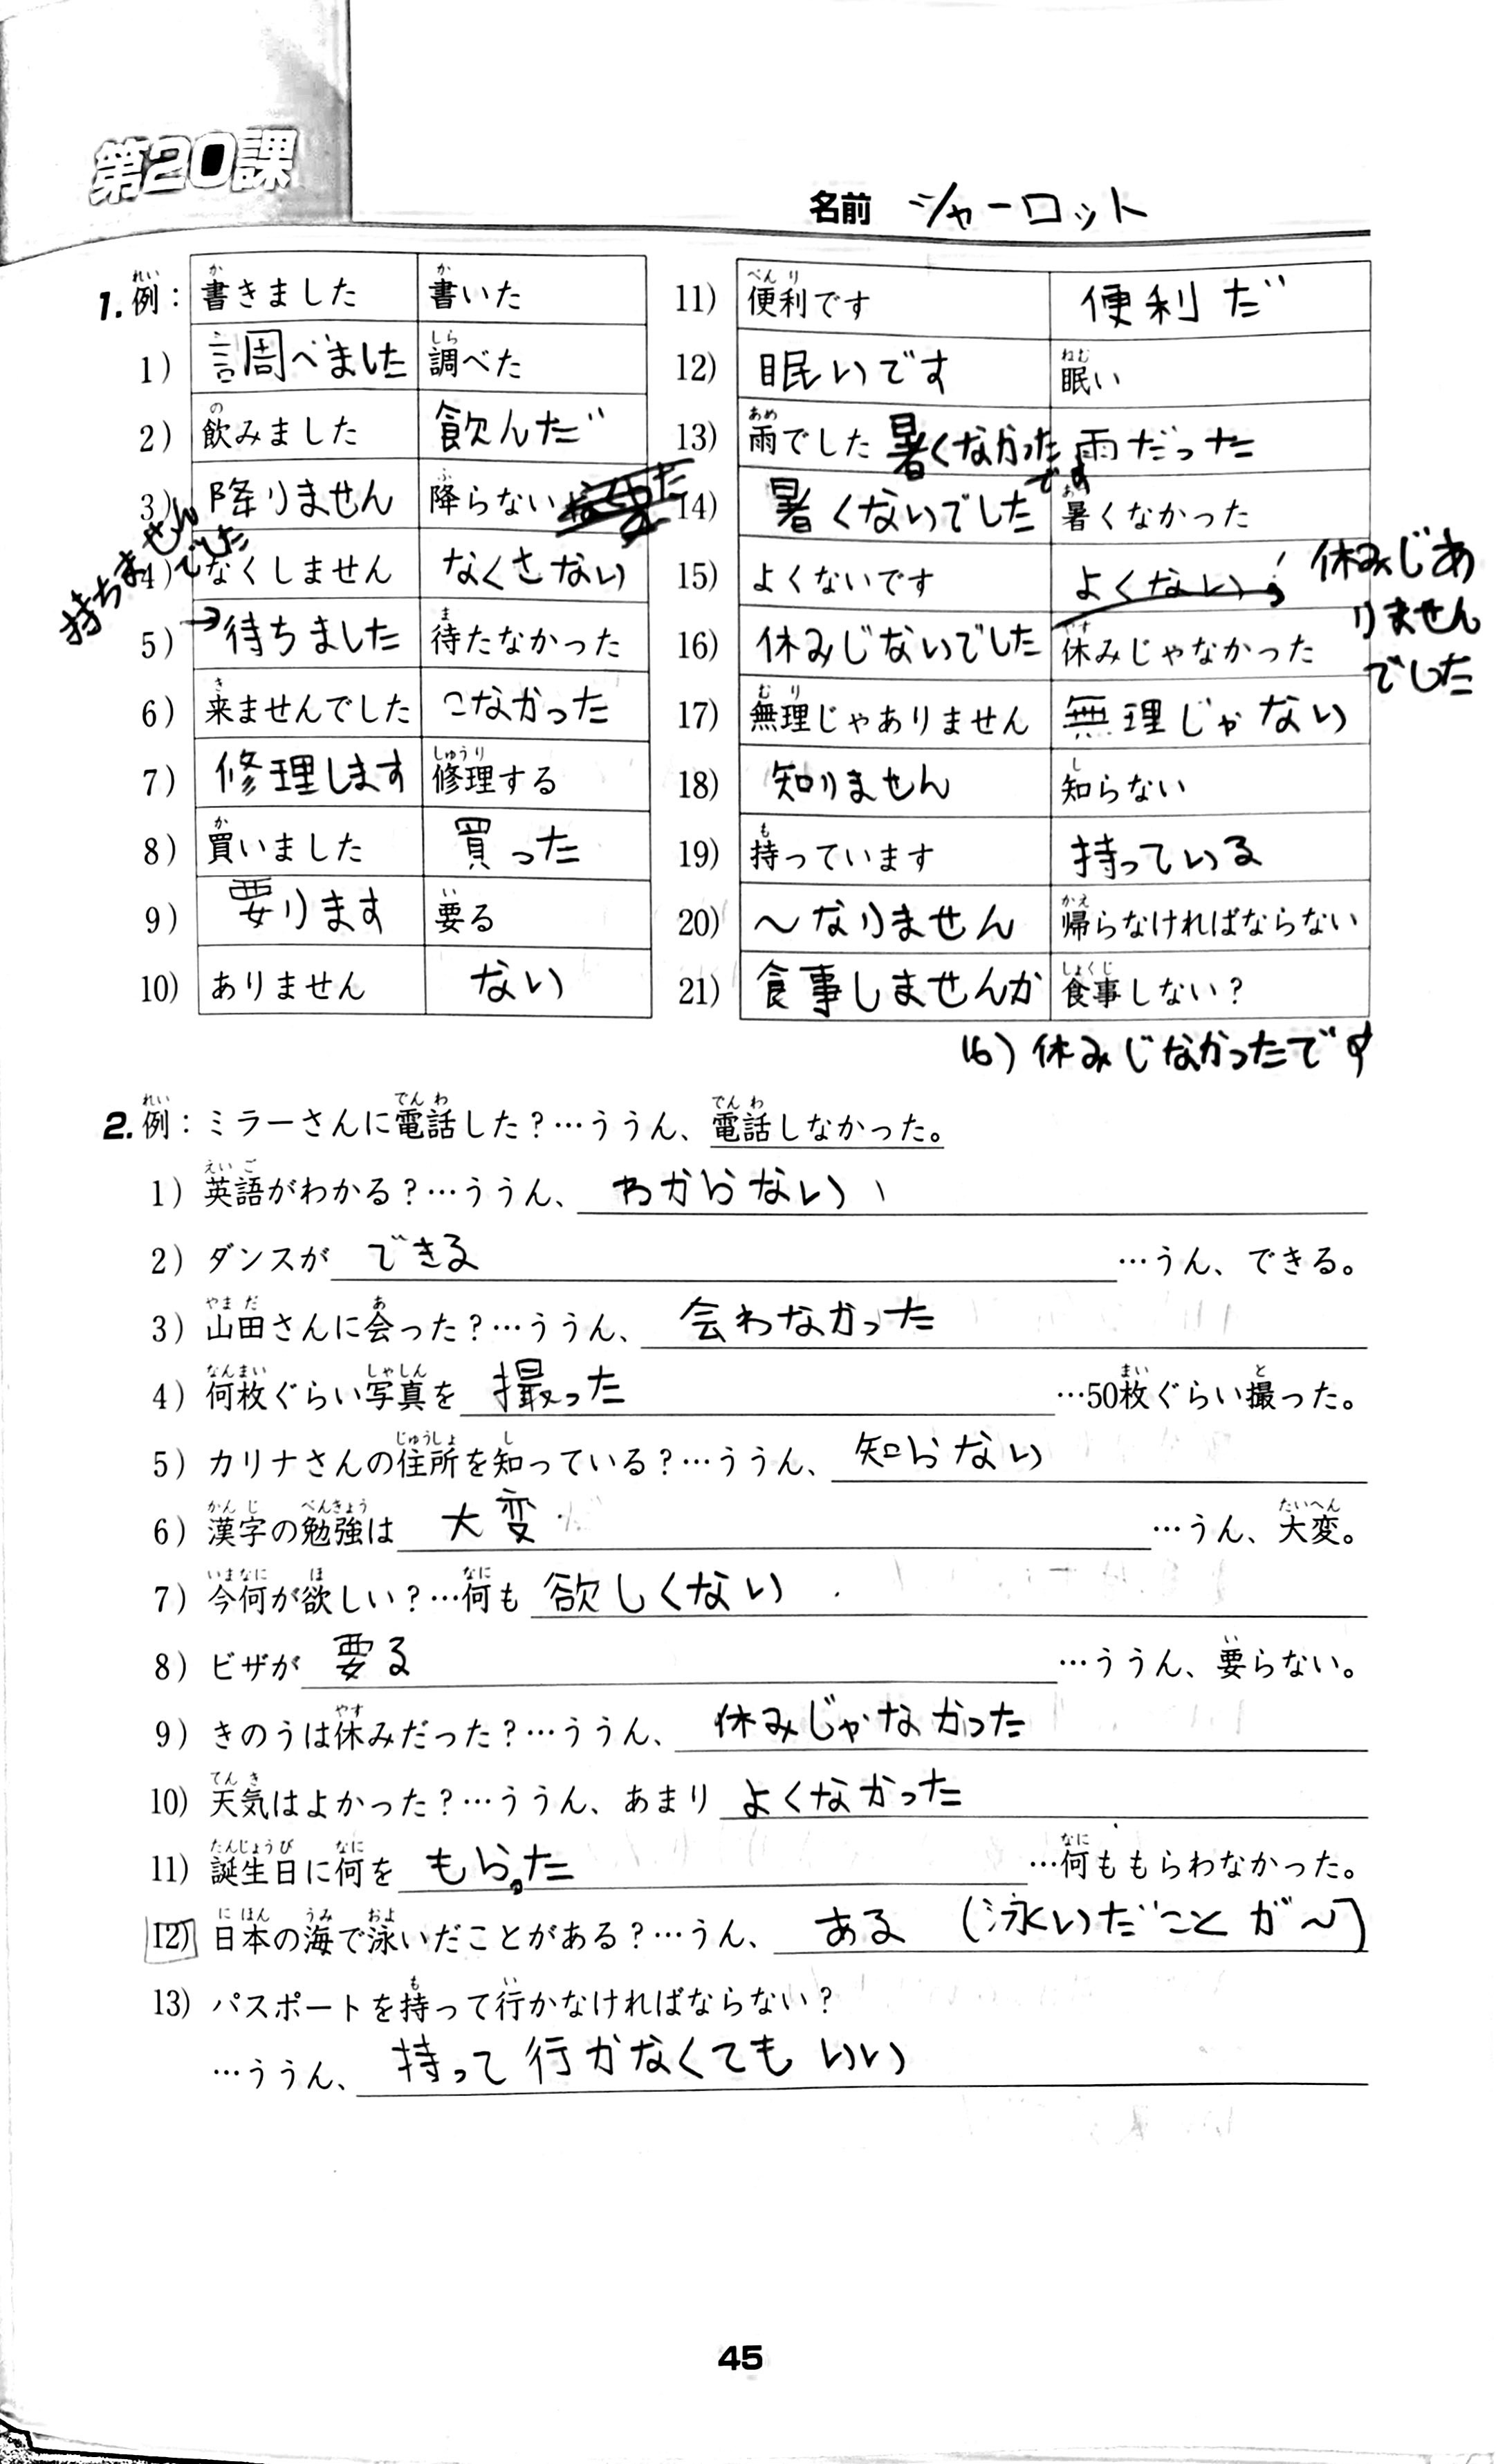 第20課
名前 シャーロット
1. 例： 書きました 書いた
1) 調べました 調べた
2) 飲みました 飲んだ
3) 降りません 降らない
持ちませんでした
4) なくしません なくさない
5) →待ちました 待たなかった
6) 来ませんでした こなかった
7) 修理します 修理する
8) 買いました 買った
9) 要ります 要る
10) ありません ない
11) 便利です 便利だ
12) 眠いです 眠い
13) 雨でした 雨だった
暑くなかったです
14) 暑くないでした 暑くなかった
15) よくないです よくない
休みじありませんでした
16) 休みじないでした 休みじゃなかった
17) 無理じゃありません 無理じゃない
18) 知りません 知らない
19) 持っています 持っている
20) 〜なりません 帰らなければならない
21) 食事しませんか 食事しない？
16) 休みじなかったです
2. 例：ミラーさんに電話した？…ううん、電話しなかった。
1) 英語がわかる？…ううん、わからない
2) ダンスが できる …うん、できる。
3) 山田さんに会った？…ううん、会わなかった
4) 何枚ぐらい写真を 撮った …50枚ぐらい撮った。
5) カリナさんの住所を知っている？…ううん、知らない
6) 漢字の勉強は 大変 …うん、大変。
7) 今何が欲しい？…何も 欲しくない
8) ビザが 要る …ううん、要らない。
9) きのうは休みだった？…ううん、休みじゃなかった
10) 天気はよかった？…ううん、あまり よくなかった
11) 誕生日に何を もらった …何ももらわなかった。
12) 日本の海で泳いだことがある？…うん、ある （泳いだことが〜）
13) パスポートを持って行かなければならない？
…ううん、持って行かなくてもいい
45